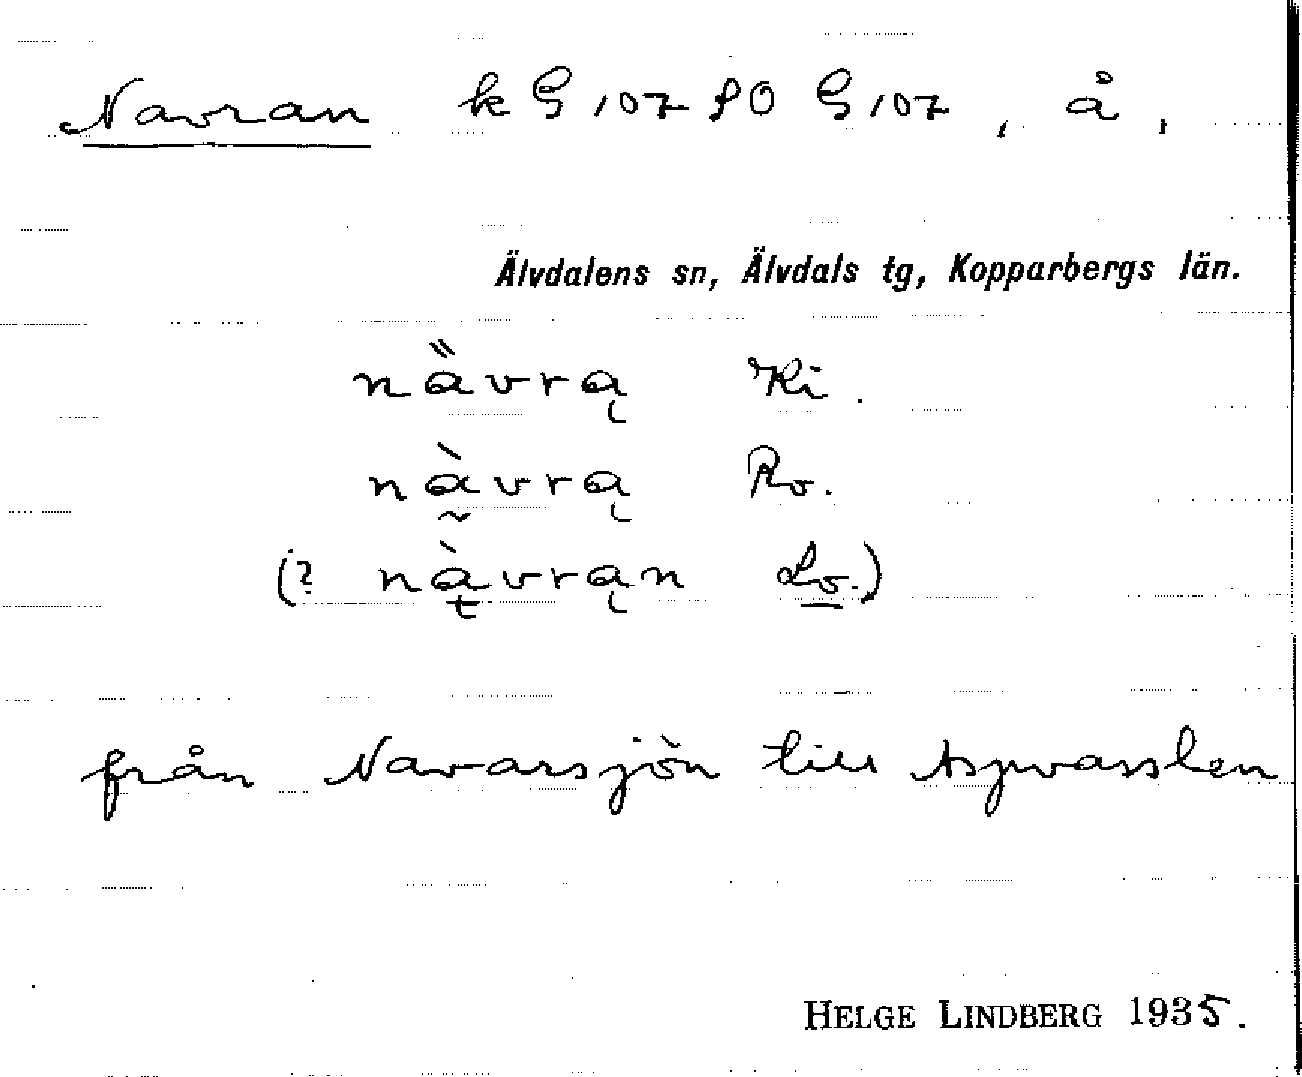 Navran k G 107 SO G 107, å,
Älvdalens sn, Älvdals tg, Kopparbergs län.
nȁvrą Ki.
nàvrą Ro.
(? nàvrąn Lo.)
från Navarsjön till Asjvasslen
HELGE LINDBERG 1935.